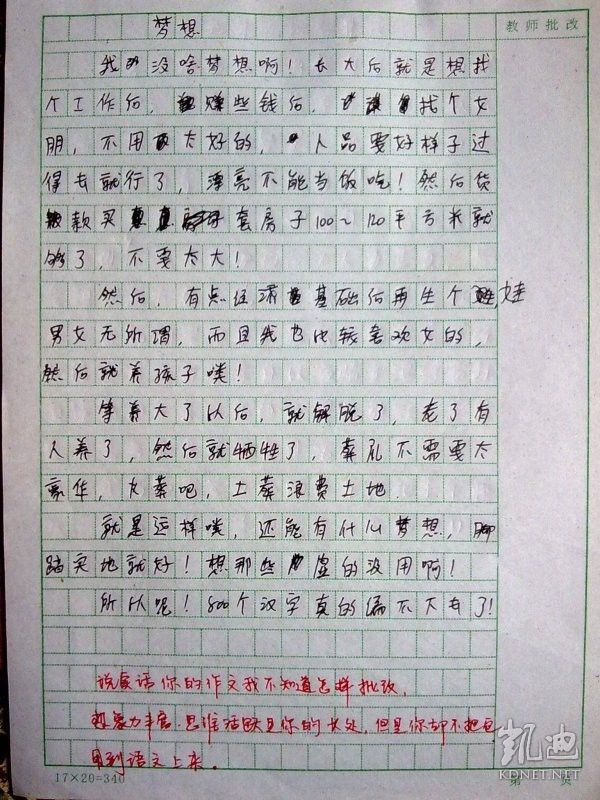 梦想
教师批改
我没啥梦想啊!长大后就是想找
个工作后,赚些钱后,找个女
朋,不用太好的,人品要好样子过
得去就行了,漂亮不能当饭吃!然后贷
款买套房子100~120平方米就
够了,不要太大!
然后,有点经济基础后再生个娃,
男女无所谓,而且我也比较喜欢女的,
然后就养孩子喽!
等养大了以后,就解脱了,老了有
人养了,然后就牺牲了,葬礼不需要太
豪华,火葬吧,土葬浪费土地
就是这样喽,还能有什么梦想,脚
踏实地就好!想那些虚的没用啊!
所以呢!800个汉字真的编不下去了!
说实话你的作文我不知道怎样批改,
想象力丰富.思维活跃是你的长处,但是你却不把它
用到语文上来.
17×20=340
第 页
凯迪
KDNET.NET